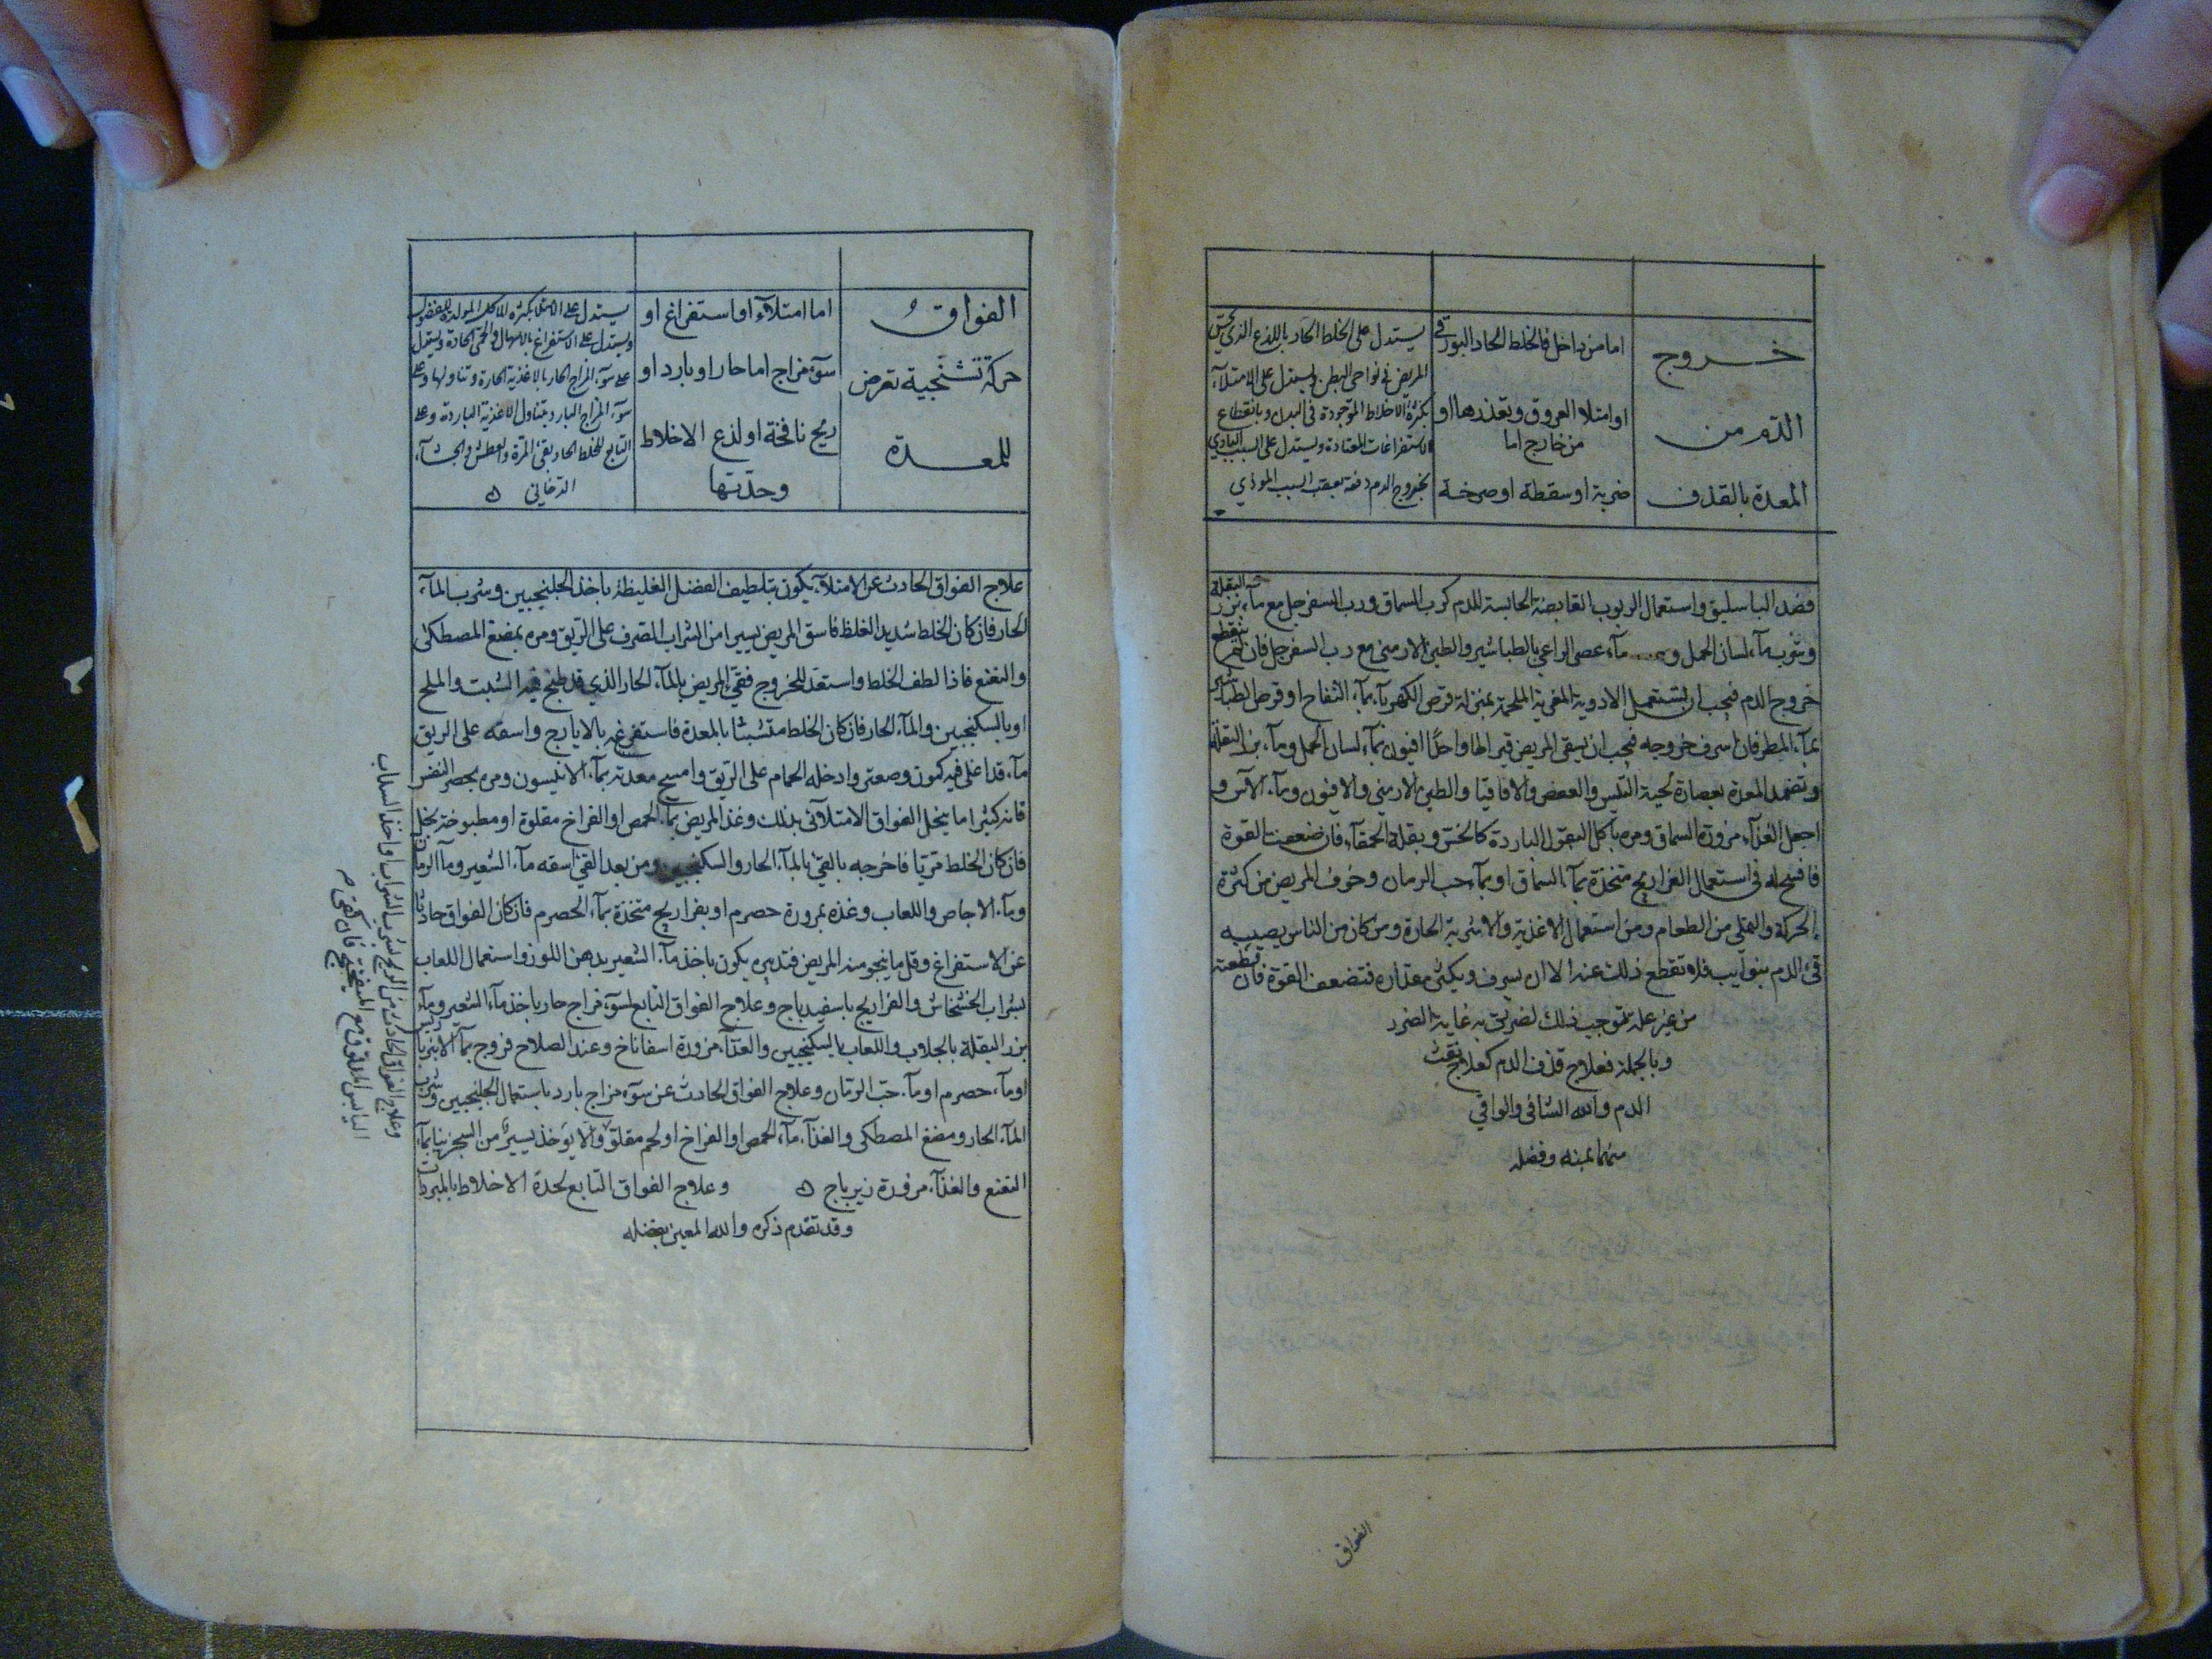 خروج
الدم من
المعدة بالقذف
اما من داخل فالخلط الحاد البورقي
او امتلا العروق وتعذرها او
من خارج اما
ضربة او سقطة او صرخة
يستدل على الخلط الحاد باللذع الذي يحس
المريض في نواحي البطن ويستدل على الامتلآء
بكثرة الاخلاط الموجودة في البدن وبانقطاع
الاستفراغات المعتادة ويستدل على السبب البادي
بخروج الدم دفعة بعقب السبب الموذي
فصد الباسليق واستعمال الربوب القابضة الحابسة للدم كرب السماق ورب السفرجل مع مآء بزر البقلة
وشربه مآء لسان الحمل و مآء عصى الراعي بالطباشير والطين الارمني مع رب السفرجل فان لم ينقطع
خروج الدم فيجب ان يستعمل الادوية المغرية الملحمة بمنزلة قرص الكهربآء بمآء التفاح او قرص الطباشير
بمآء المطر فان اسرف خروجه فيجب ان يسقى المريض قيراطا واحدا افيون بمآء لسان الحمل ومآء بزر البقلة
وتضمد المعدة بعصارة لحية التيس والعفص والاقاقيا والطين الارمني والافيون ومآء الآس و
اجعل الغذآء مزورة السماق ومره باكل البقول الباردة كالخس وبقلة الحمقآء فان ضعفت القوة
فافسح له في استعمال الفراريج متخذة بمآء السماق او بمآء حب الرمان وخوف المريض من كثرة
الحركة والتملي من الطعام ومن استعمال الاغذية والاشربة الحارة ومن كان من الناس يصيبه
قيء الدم بنوآيب فلا تقطع ذلك عنه الا ان يسرف ويكثر مقداره فتضعف القوة فان قطعته
من غير علة توجب ذلك لضررت به غاية الضرر
وبالجملة فعلاج قذف الدم كعلاج نفث
الدم والله الشافي والواقي
منهما بمنه وفضله
الفواق
الفواق
حركة تشنجية تعرض
للمعدة
اما امتلآء او استفراغ او
سوء مزاج اما حار او بارد او
ريح نافخة او لذع الاخلاط
وحدتها
يستدل على الامتلا بكثرة الاكل المولدة للفضول
ويستدل على الاستفراغ بالاسهال والحمى الحادة ويستدل
على سوء المزاج الحار بالاغذية الحارة وتناولها وعلى
سوء المزاج البارد بتناول الاغذية الباردة وعلى
التابع للخلط الحاد بقيء المرة والعطش والجشآء
الدخاني ه
علاج الفواق الحادث عن الامتلآء يكون بتلطيف الفضل الغليظة باخذ الجلنجبين وشرب المآء
الحار فان كان الخلط شديد الغلظ فاسق المريض يسيرا من الشراب الصرف على الريق ومره بمضغ المصطكى
والنعنع فاذا لطف الخلط واستعد للخروج فقيء المريض بالمآء الحار الذي قد طبخ فيه الشبت والملح
او بالسكنجبين والمآء الحار فان كان الخلط متشبثا بالمعدة فاستفرغه بالايارج واسقه على الريق
مآء قد اغلي فيه كمون وصعتر وادخله الحمام على الريق وامسح معدته بمآء الانيسون ومره بحصر النفس
فانه كثيرا ما ينحل الفواق الامتلآئي بذلك وغذ المريض بمآء الحمص او الفراخ مقلوة او مطبوخة بخل
فان كان الخلط مريا فاخرجه بالقيء بالمآء الحار والسكنجبين ومن بعد القيء اسقه مآء الشعير ومآء الرمان
ومآء الاجاص واللعاب وغذه بمزورة حصرم او بفراريج متخذة بمآء الحصرم فان كان الفواق حادثا
عن الاستفراغ وقل ما ينجو منه المريض فتدبيره يكون باخذ مآء الشعير بدهن اللوز واستعمال اللعاب
بشراب الخشخاش والفراريج باسفيدباج وعلاج الفواق التابع لسوء مزاج حار باخذ مآء الشعير ومآء
بزر البقلة بالجلاب واللعاب بالسكنجبين والغذآء مزورة اسفاناخ وعند الصلاح فروج بمآء الانبرباريس
او مآء حصرم او مآء حب الرمان وعلاج الفواق الحادث عن سوء مزاج بارد باستعمال الجلنجبين وشرب
المآء الحار ومضغ المصطكى والغذآء مآء الحمص او الفراخ او لحم مقلو والا يوخذ يسير من السجزنيا بمآء
النعنع والغذآء مزورة زيرباج ه وعلاج الفواق التابع لحدة الاخلاط بالمبردات
وقد تقدم ذكره والله المعين بفضله
وعلاج الفواق الحادث من الريح بشرب الشراب واخذ السذاب
اليابس المدقوق مع